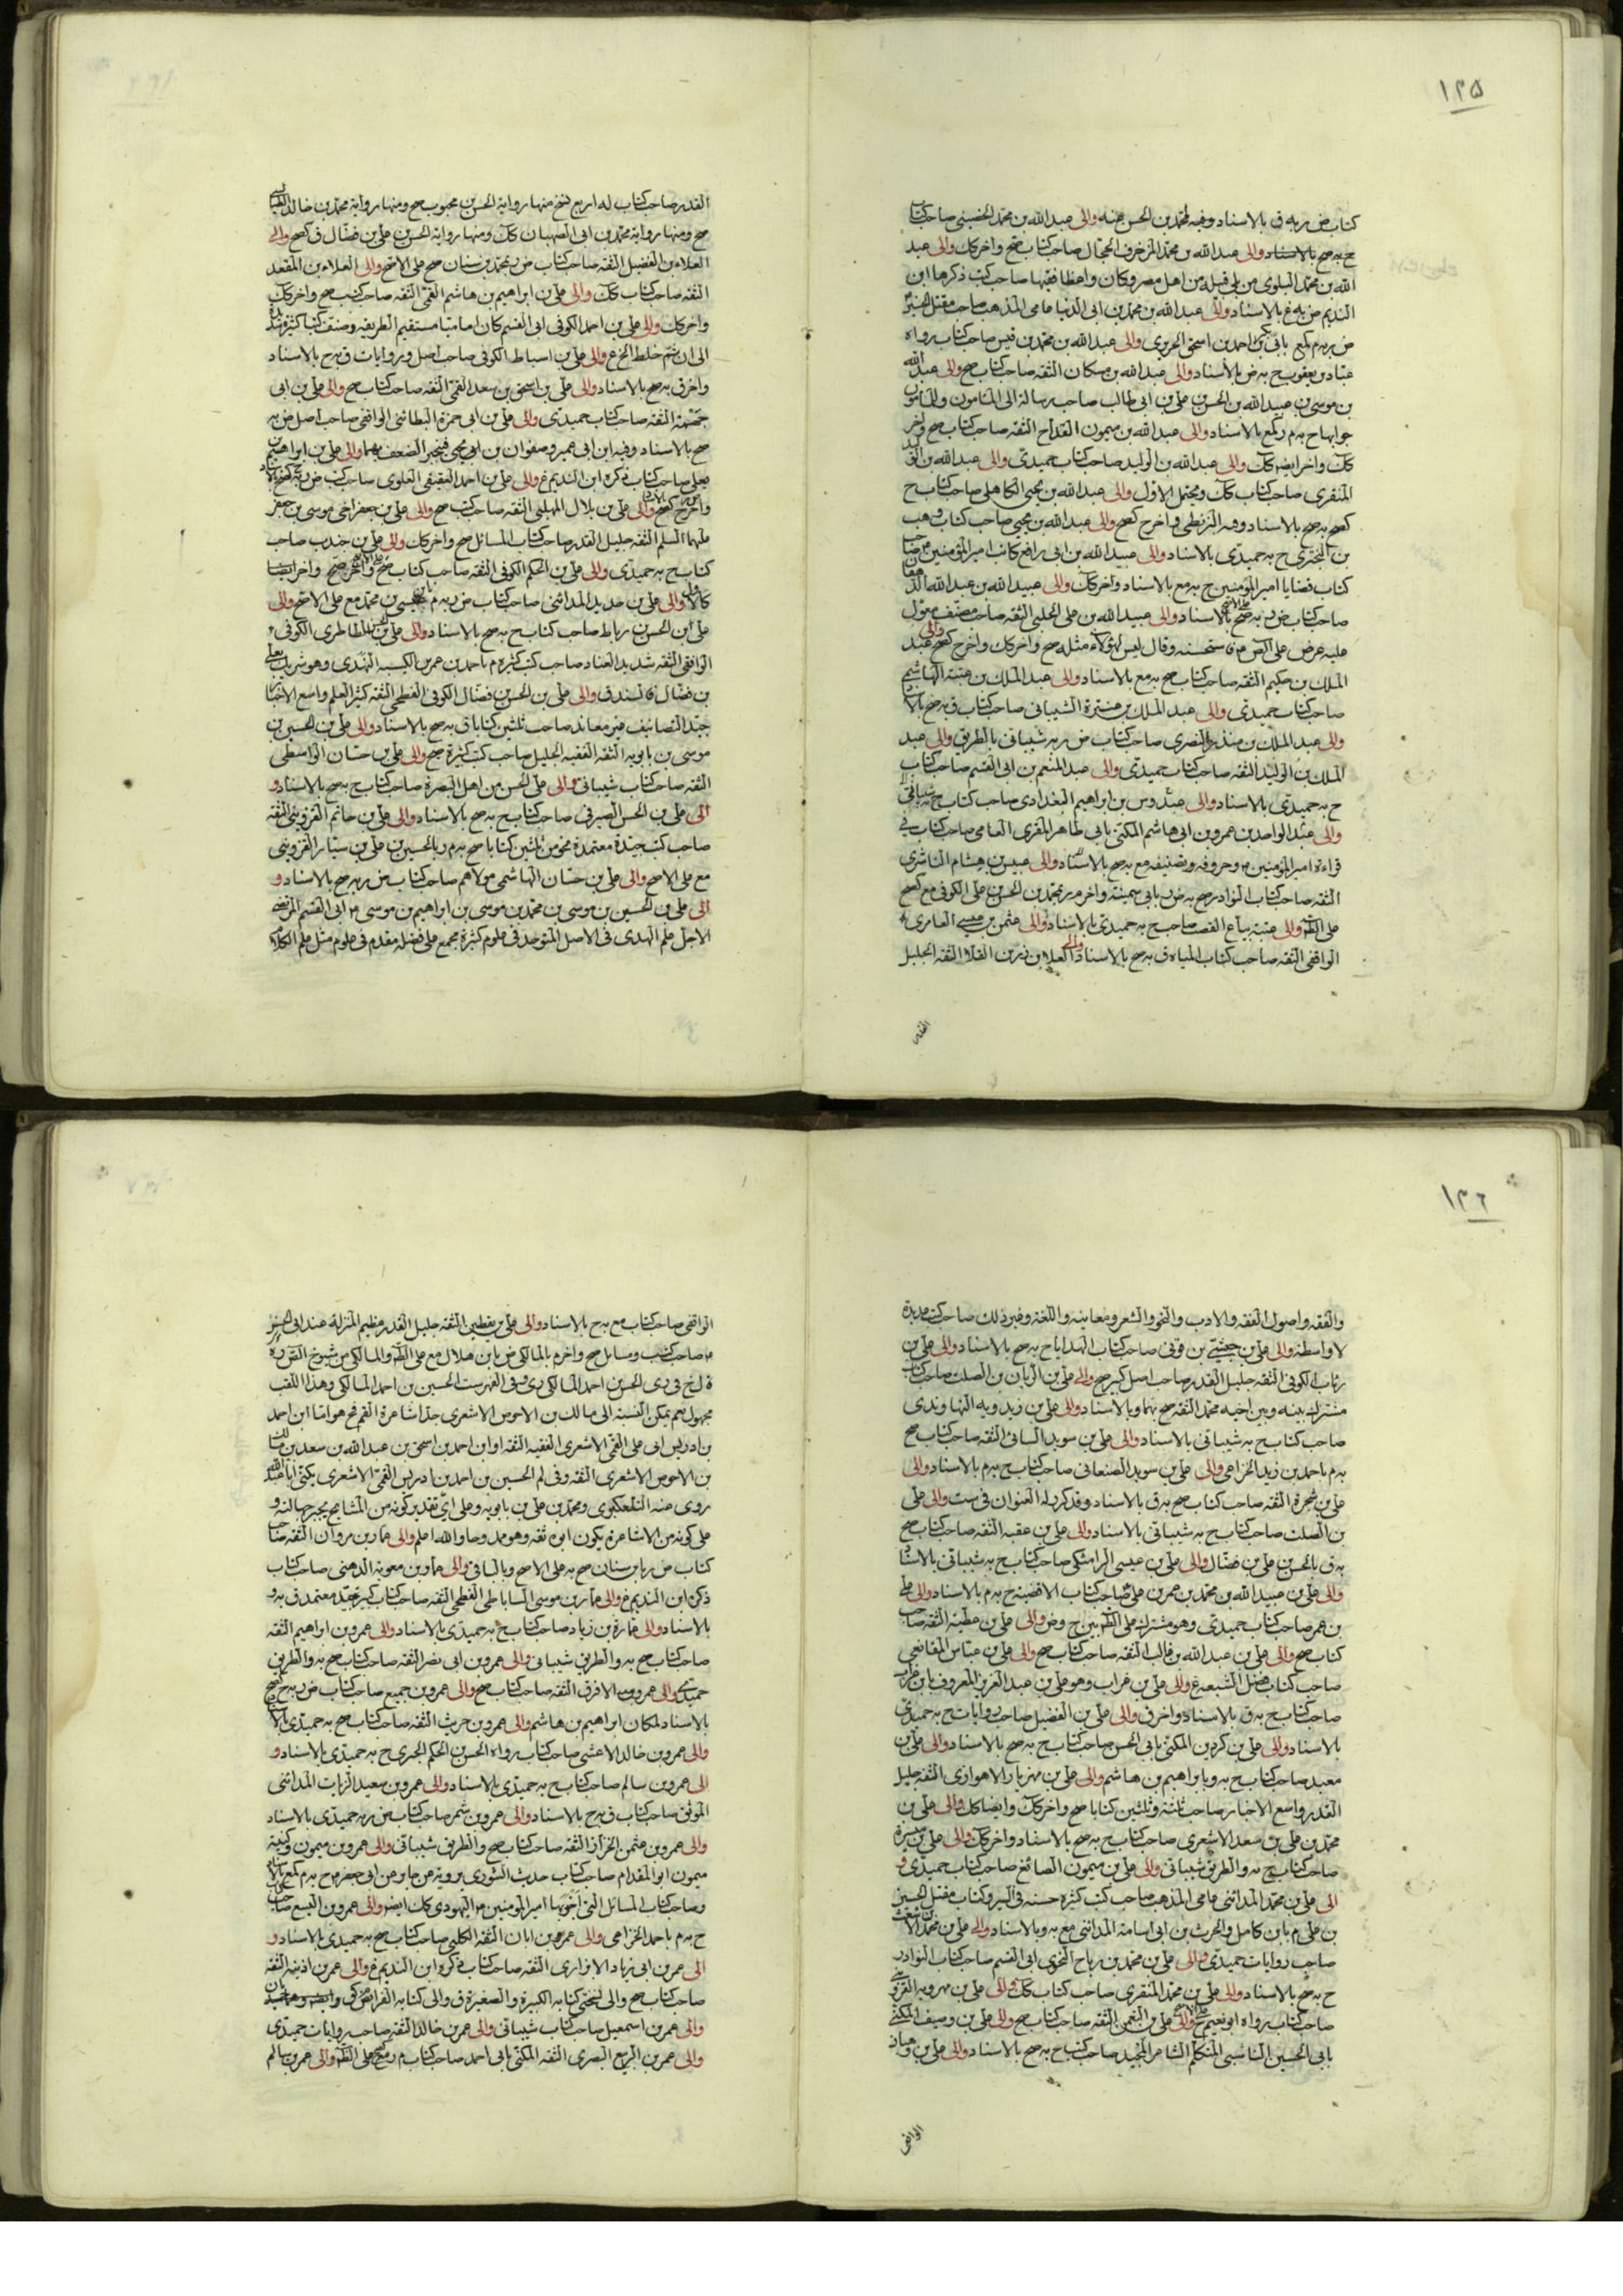 ١٢٥
كتاب ض ربه ق بالاسناد وفيه محمد بن الحسن عنه والى عبد الله بن محمد الحضينى صاحب كتاب
ح به صح بالاسناد والى عبد الله بن محمد المزخرف الحجال صاحب كتاب صح واخر كك والى عبد
الله بن محمد البلوى من بلى قبيله من اهل مصر وكان واعظا فقيها صاحب كتب ذكرها ابن
النديم ض به غ بالاسناد والى عبد الله بن محمد بن ابى الدنيا عامى المذهب صاحب مقتل
احمد بن اسحق الحريرى والى عبد الله بن محمد بن قيس صاحب كتاب رواه
عباد بن يعقوب ح به ض بالاسناد والى عبد الله بن مسكان الثقه صاحب كتاب صح والى عبد الله
بن موسى بن عبيد الله بن الحسن بن على بن ابى طالب صاحب رسالة الى المامون
جوابها ح به م بالاسناد والى عبد الله بن ميمون القداح الثقه صاحب كتاب صح واخر
كك واخر ايضا كك والى عبد الله بن الوليد صاحب كتاب حميدى والى عبد الله بن
المنقرى صاحب كتاب كك ويحتمل الاول والى عبد الله بن يحيى الكاهلى صاحب كتاب ح
كصح به صح بالاسناد وفيه البزنطى واخر ح كصح والى عبد الله بن يحيى صاحب كتاب وهب
بن البخترى ح به حميدى بالاسناد والى عبيد الله بن ابى رافع كاتب امير المؤمنين ع صاحب
كتاب قضايا امير المؤمنين ح به مع بالاسناد واخر كك والى عبيد الله بن عبد الله الدهقان
صاحب كتاب ض به صح بالاسناد والى عبيد الله بن على الحلبى الثقه صاحب مصنف معول
عليه عرض على الص ع فاستحسنه وقال ليس لهؤلاء مثله صح واخر كك واخر ح كصح والى عبد
الملك بن حكيم الثقه صاحب كتاب صح به مع بالاسناد والى عبد الملك بن عتبة الهاشمى
صاحب كتاب حميدى والى عبد الملك بن عنترة الشيبانى صاحب كتاب ق به صح بالاسناد
والى عبد الملك بن منذر البصرى صاحب كتاب ض ر به شيبانى بالطريق والى عبد
الملك بن الوليد الثقه صاحب كتاب حميدى والى عبد المنعم بن ابى القسم صاحب كتاب
ح به حميدى بالاسناد والى عبدوس بن ابراهيم البغدادى صاحب كتاب ح به شيبانى
والى عبد الواحد بن عمر بن ابى هاشم المكنى بابى طاهر المقرى العامى صاحب كتاب فى
قراءة امير المؤمنين ع وحروفه وتصنيفه مع به صح بالاسناد والى عبيس بن هشام الناشرى
الثقه صاحب كتاب النوادر صح به ض ر بابى سمينة واخر م ر بمحمد بن الحسن بن على الكوفى مع كصح
والى عتبة بياع القصب صاحب ح به حميدى بالاسناد والى عثمن بن عيسى العامرى
الواقفى الثقه صاحب كتاب المياه ق به صح بالاسناد والى العلا بن رزين القلا الثقه الجليل
الثقه
القدر صاحب كتاب له اربع نسخ منها رواية الحسن بن محبوب صح ومنها رواية محمد بن خالد الطيالسى
صح ومنها رواية محمد بن ابى الصهبان كك ومنها رواية الحسن بن على بن فضال ق كصح والى
العلاء بن الفضيل الثقه صاحب كتاب ض ر بمحمد بن سنان صح على الاصح والى العلاء بن المقعد
الثقه صاحب كتاب كك والى على بن ابراهيم بن هاشم القمى الثقه صاحب كتب صح واخر كك
واخر كك والى على بن احمد الكوفى ابى القسم كان اماميا مستقيم الطريقه وصنف كتبا كثيرة
الى ان ثم خلط الخ غ والى على بن اسباط الكوفى صاحب اصل وروايات ق به ح بالاسناد
واخر ق به صح بالاسناد والى على بن اسحق بن سعد القمى الثقه صاحب كتاب صح والى على بن ابى
جهمة الثقه صاحب كتاب حميدى والى على بن ابى حمزة البطائنى الواقفى صاحب اصل ض به
صح بالاسناد وفيه ابن ابى عمير وصفوان بن يحيى فينجبر الضعف بهما والى على بن ابراهيم
بن يعلى صاحب كتاب ذكره ابن النديم غ والى على بن احمد العقيقى العلوى صاحب كتب ض
والى على بن بلال المهلبى الثقه صاحب كتب صح والى على بن جعفر اخى موسى بن جعفر
عليهما السلم الثقه جليل القدر صاحب كتاب المسائل صح واخر كك والى على بن جندب صاحب
كتاب ح به حميدى والى على بن الحكم الكوفى الثقه صاحب كتاب صح واخر صح واخر ايضا
والى على بن حديد المدائنى صاحب كتاب ض ر به م بعيسى بن محمد مع على الاصح والى
على بن الحسن بن رباط صاحب كتاب ح به صح بالاسناد والى على بن الحسن الطاطرى الكوفى
الواقفى الثقه شديد العناد صاحب كتب كثيرة م باحمد بن عمر بن كيسبه النهدى
بن فضال والى على بن الحسن بن فضال الكوفى الفطحى الثقه كثير العلم واسع الاخبار
جيد التصانيف غير معاند صاحب ثلثين كتابا ق به صح بالاسناد والى على بن الحسين بن
موسى بن بابويه الثقه الفقيه الجليل صاحب كتب كثيرة صح والى على بن حسان الواسطى
الثقه صاحب كتاب شيبانى والى على الحسن من اهل البصرة صاحب كتاب ح به صح بالاسناد و
الى على بن الحسن الصيرفى صاحب كتاب ح به صح بالاسناد والى على بن حاتم القزوينى الثقه
صاحب كتب جيدة معتمدة نحو من ثلثين كتابا صح به م ر بالحسين بن على بن شيبان القزوينى
مع على الاصح والى على بن حسان الهاشمى مولاهم صاحب كتاب ض ر به صح بالاسناد و
الى على بن الحسين بن موسى بن محمد بن موسى بن ابراهيم بن موسى ع ابى القسم المرتضى
الاجل علم الهدى فى الاصل المتوحد فى علوم كثيرة مجمع على فضله مقدم فى علوم مثل علم الكلام
١٢٦
والفقه واصول الفقه والادب والنحو والشعر ومعانيه واللغة وغير ذلك صاحب كتب عديدة
لاواسطة والى على بن حبشى بن قونى صاحب كتاب الهدايا ح به صح بالاسناد والى على بن
رئاب الكوفى الثقه جليل القدر صاحب اصل كبير صح والى على بن الريان بن الصلت صاحب كتاب
مشترك بينه وبين اخيه محمد الثقه صح بهما وبالاسناد والى على بن زيدويه النهاوندى
صاحب كتاب ح به شيبانى بالاسناد والى على بن سويد السائى الثقه صاحب كتاب صح
به م باحمد بن زيد الخزاعى والى على بن سويد الصنعانى صاحب كتاب ح به م بالاسناد والى
على بن شجرة الثقه صاحب كتاب صح به ق بالاسناد وقد كرر له العنوان فى ست والى على
بن الصلت صاحب كتاب ح به شيبانى بالاسناد والى على بن عقبه الثقه صاحب كتاب صح
به ق بالحسن بن على بن فضال والى على بن عيسى الرامشكى صاحب كتاب ح به شيبانى بالاسناد
والى على بن عبيد الله بن محمد بن عمر بن على صاحب كتاب الاقضية ح به م بالاسناد والى على
بن عمر صاحب كتاب حميدى وهو مشترك على الظ بين ح وض والى على بن عطية الثقه صاحب
كتاب صح والى على بن عبد الله بن غالب الثقه صاحب كتاب صح والى على بن عباس المقانعى
صاحب كتاب فضل الشيعه غ والى على بن غراب وهو على بن عبد العزيز المعروف بابن غراب
صاحب كتاب ح به ق بالاسناد واخر ق والى على بن الفضيل صاحب روايات ح به حميدى
بالاسناد والى على بن كردين المكنى بابى الحسن صاحب كتاب ح به صح بالاسناد والى على بن
معبد صاحب كتاب ح به وبابراهيم بن هاشم والى على بن مهزيار الاهوازى الثقه جليل
القدر واسع الاخبار صاحب ثلثة وثلثين كتابا صح واخر كك وايضا كك والى على بن
محمد بن على بن سعد الاشعرى صاحب كتاب ح به صح بالاسناد واخر كك والى على بن ميسرة
صاحب كتاب ح به والطريق شيبانى والى على بن ميمون الصائغ صاحب كتاب حميدى و
الى على بن محمد المدائنى عامى المذهب صاحب كتب كثيرة حسنه فى السير وكتاب مقتل الحسين
بن على م بابن كامل والحرث بن ابى اسامة المدائنى مع به وبالاسناد والى على بن محمد بن الاشعث
صاحب روايات حميدى والى على بن محمد بن رباح النحوى ابى القسم صاحب كتاب النوادر
ح به صح بالاسناد والى على بن محمد المنقرى صاحب كتاب كك والى على بن مهرويه القزوينى
صاحب كتاب رواه ابو نعيم والى على بن النعمن الثقه صاحب كتاب صح والى على بن وصيف المكنى
بابى الحسين الناشى المتكلم الشاعر المجيد صاحب كتب ح به صح بالاسناد والى على بن وهبان
الواقفى
الواقفى صاحب كتاب مع به ح بالاسناد والى على بن يقطين الثقه جليل القدر عظيم المنزلة عند ابى الحسن
ع صاحب كتب ومسايل صح واخر م بالمالكى ض بابن هلال مع على الظ والمالكى من شيوخ الصدوق
الحسن بن احمد المالكى رى وفى الفهرست الحسين بن احمد المالكى وهذا اللقب
مجهول نعم يمكن النسبة الى مالك بن الاحوص الاشعرى جد اشاعرة القم فح هو اما ابن احمد
بن ادريس ابى على القمى الاشعرى الفقيه الثقه او ابن احمد بن اسحق بن عبد الله بن سعد بن مالك
بن الاحوص الاشعرى الثقه وفى لم الحسين بن احمد بن ادريس القمى الاشعرى يكنى ابا عبد الله
روى عنه التلعكبرى ومحمد بن على بن بابويه وعلى اى تقدير كونه من المشايخ يجبر جهالته و
على كونه من الاشاعرة يكون ابوه ثقه وهو ممدوحا والله اعلم والى عمار بن مروان الثقه صاحب
كتاب ض ر بابن سنان صح به على الاصح وبالباقى والى عمار بن معويه الدهنى صاحب كتاب
ذكره ابن النديم غ والى عمار بن موسى الساباطى الفطحى الثقه صاحب كتاب كبير جيد معتمد ق به و
بالاسناد والى عمارة بن زياد صاحب كتاب ح به حميدى بالاسناد والى عمرو بن ابراهيم الثقه
صاحب كتاب صح به والطريق شيبانى والى عمرو بن ابى نصر الثقه صاحب كتاب صح به والطريق
حميدى والى عمرو بن الافرق الثقه صاحب كتاب صح والى عمرو بن جميع صاحب كتاب ض ر به ح كصح
بالاسناد لمكان ابراهيم بن هاشم والى عمرو بن حريث الثقه صاحب كتاب صح به حميدى بالاسناد
والى عمرو بن خالد الاعشى صاحب كتاب رواه الحسن بن الحكم الحبرى ح به حميدى بالاسناد و
الى عمرو بن سالم صاحب كتاب ح به حميدى بالاسناد والى عمرو بن سعيد الزيات المدائنى
الموثق صاحب كتاب ق به ح بالاسناد والى عمرو بن شمر صاحب كتاب ض ر به حميدى بالاسناد
والى عمرو بن عثمن الخزاز الثقه صاحب كتاب صح والطريق شيبانى والى عمرو بن ميمون وكنية
ميمون ابو المقدام صاحب كتاب حديث الشورى يرويه عن جابر عن ابى جعفر ع ح به م كمع بالاسناد
وصاحب كتاب المسائل التى اخبر بها امير المؤمنين ع اليهودى كك ايضا والى عمرو بن اليسع صاحب
ح به م باحمد الخزاعى والى عمر بن ابان الثقه الكلبى صاحب كتاب صح به حميدى بالاسناد و
الى عمر بن ابى زياد الابزارى الثقه صاحب كتاب ذكره ابن النديم غ والى عمر بن اذينه الثقه
صاحب كتاب صح والى نسختى كتابه الكبيرة والصغيرة ق والى كتابه الفرائض ق
والى عمر بن اسمعيل صاحب كتاب شيبانى والى عمر بن خالد الثقه صاحب روايات حميدى
والى عمر بن الربيع البصرى الثقه المكنى بابى احمد صاحب كتاب م ر صح على الظ والى عمر بن سالم